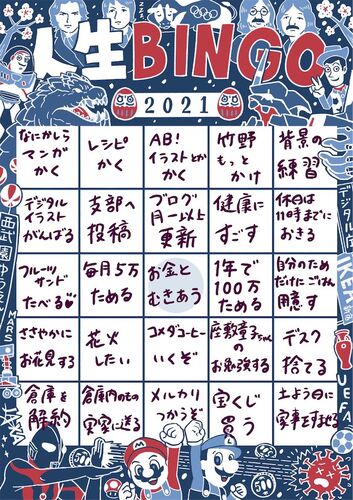 人生BINGO
2021
なにかしら
マンガ
かく
レシピ
かく
AB!
イラストとか
かく
竹野
もっと
かけ
背景の
練習
デジタル
イラスト
がんばる
支部へ
投稿
ブログ
月一以上
更新
健康に
すごす
休日は
11時までに
おきる
フルーツ
サンド
たべる
毎月5万
ためる
お金と
むきあう
1年で
100万
ためる
自分のため
だけにごはん
用意す
ささやかに
お花見する
花火
したい
コメダコーヒー
いくぞ
座敷童子ちゃん
の
お勉強する
デスク
捨てる
倉庫を
解約
倉庫内のもの
実家に送る
メルカリ
つかうぞ
宝くじ
買う
土よう日に
家事をすませる
西武園ゆうえん
MARS
デジタル
IKEA
UEFA